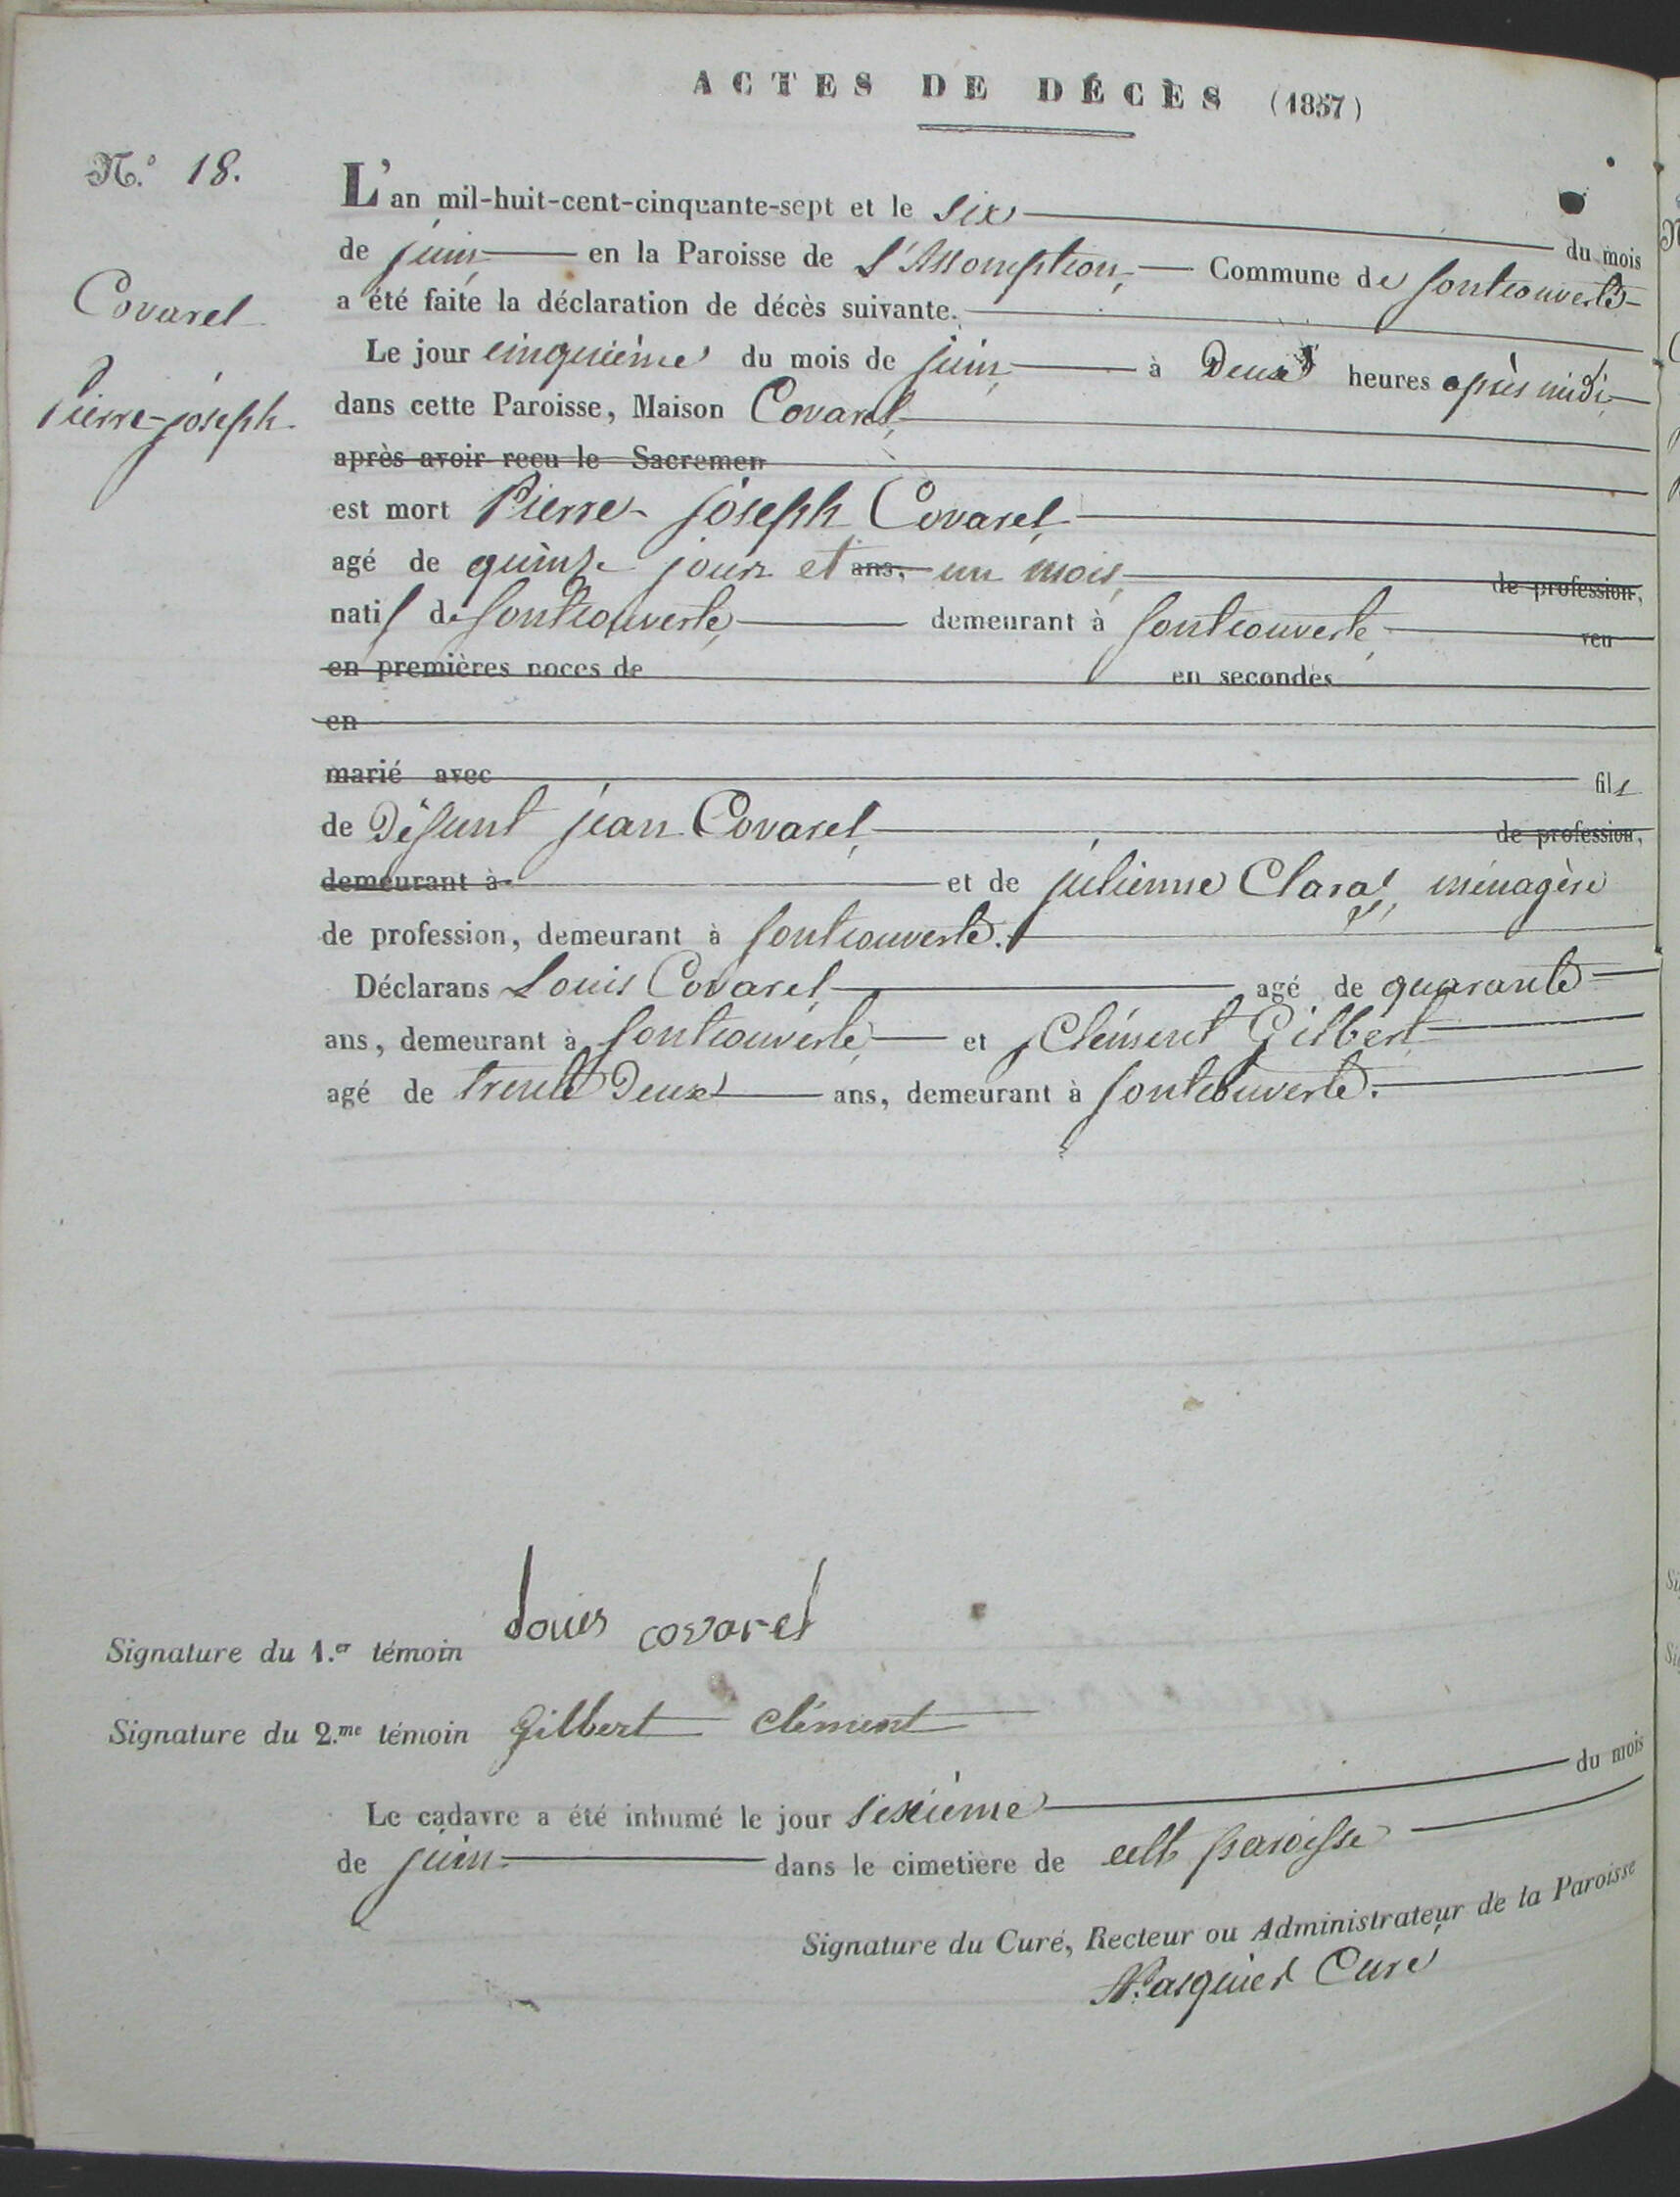 ACTES DE DÉCÈS (1857)
N.º 18.
Covarel
Pierre-joseph.
L'an mil-huit-cent-cinquante-sept et le six du mois
de juin en la Paroisse de L'Assomption, Commune de fontcouverte
a été faite la déclaration de décès suivante.
Le jour cinquième du mois de juin à Deux heures après midi,
dans cette Paroisse, Maison Covarel,
après avoir reçu le Sacremen
est mort Pierre-joseph Covarel,
agé de quinze jours et ans, un mois, de profession,
natif de fontcouverte, demeurant à fontcouverte, veu
en premières noces de en secondes
en
marié avec fils
de Défunt jean Covarel, de profession,
demeurant à et de julienne Claraz, ménagère
de profession, demeurant à fontcouverte.
Déclarans Louis Covarel agé de quarante
ans, demeurant à fontcouverte, et Clément Gilbert
agé de trente Deux ans, demeurant à fontcouverte.
Signature du 1.er témoin Louis covarel
Signature du 2.me témoin Gilbert Clément
Le cadavre a été inhumé le jour sixième du mois
de juin dans le cimetière de cette paroisse
Signature du Curé, Recteur ou Administrateur de la Paroisse
Curé